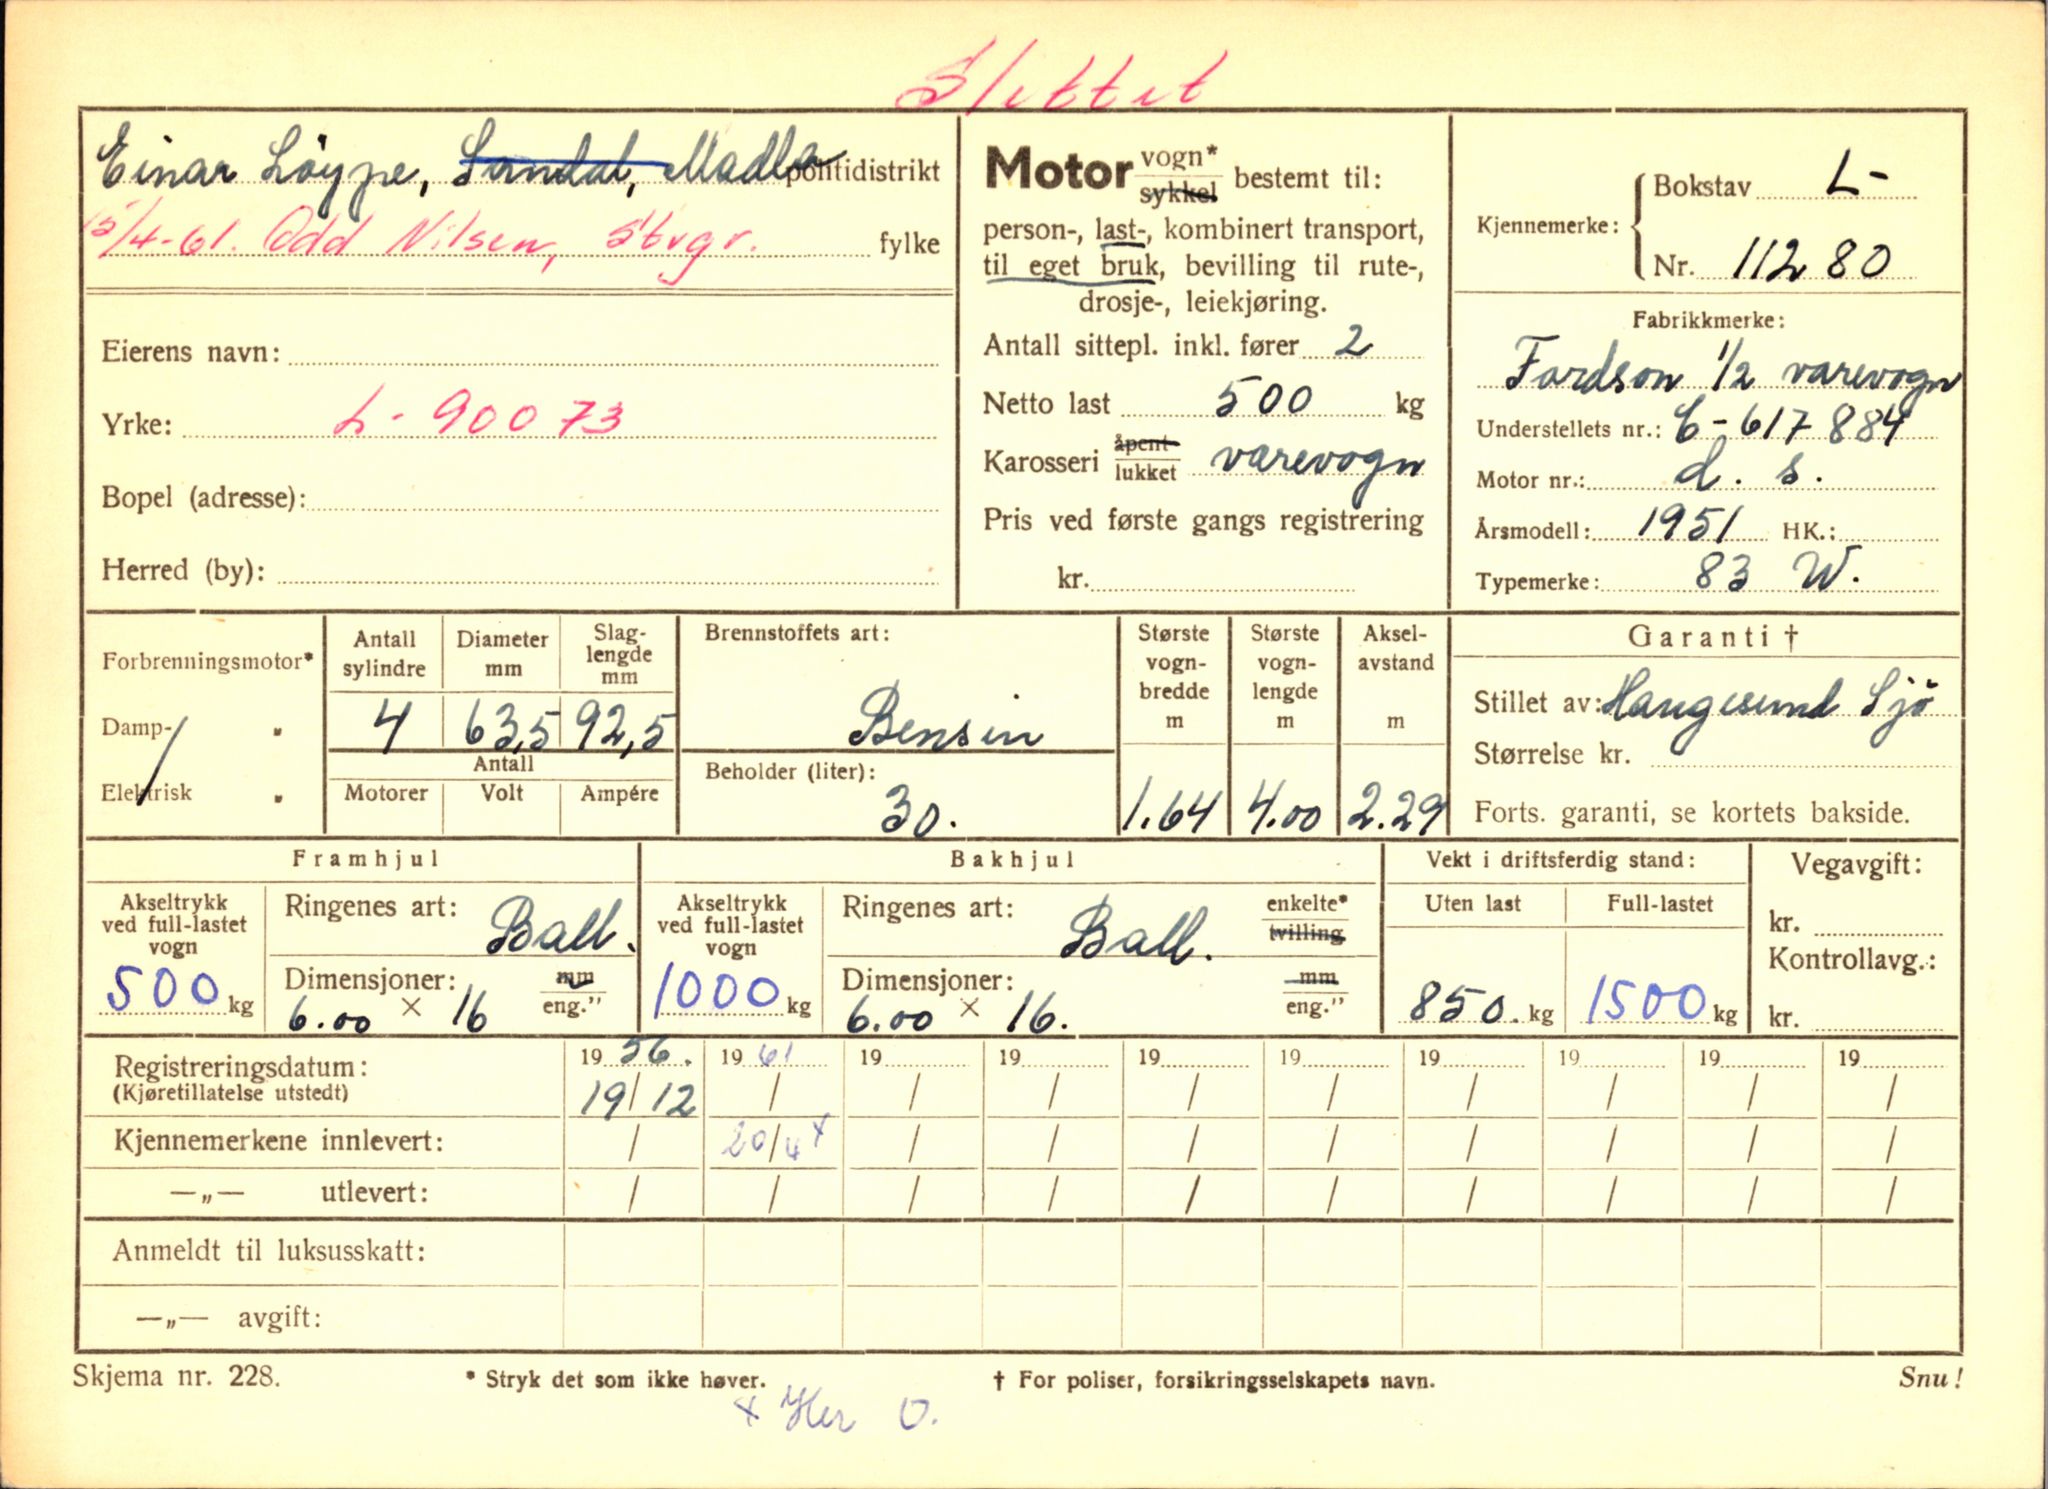 Slettet
Einar Löype, Sandal, Madla politidistrikt
15/4-61. Odd Nilsen, Stvgr. fylke
Eierens navn:
Yrke: L- 90073
Bopel (adresse):
Herred (by):
Motor vogn* sykkel bestemt til:
person-, last-, kombinert transport,
til eget bruk, bevilling til rute-,
drosje-, leiekjøring.
Antall sittepl. inkl. fører 2
Netto last 500 kg
Karosseri åpent lukket varevogn
Pris ved første gangs registrering
kr.
Kjennemerke: Bokstav L-
Nr. 11280
Fabrikkmerke:
Fordson 1/2 varevogn
Understellets nr.: C-617884
Motor nr.: d. s.
Årsmodell: 1951 HK.:
Typemerke: 83 W.
Forbrenningsmotor*
Damp- „
Elektrisk „
Antall sylindre Diameter mm Slag-lengde mm
4 63,5 92,5
Antall
Motorer Volt Ampére
Brennstoffets art:
Bensin
Beholder (liter):
30.
Største vogn-bredde m Største vogn-lengde m Aksel-avstand m
1.64 4.00 2.29
Garanti †
Stillet av: Haugesund Sjö
Størrelse kr.
Forts. garanti, se kortets bakside.
Framhjul
Akseltrykk ved full-lastet vogn
500 kg
Ringenes art: Ball.
Dimensjoner: mm eng."
6.00 × 16
Bakhjul
Akseltrykk ved full-lastet vogn
1000 kg
Ringenes art: Ball. enkelte* tvilling
Dimensjoner: mm eng."
6.00 × 16.
Vekt i driftsferdig stand:
Uten last Full-lastet
850. kg 1500 kg
Vegavgift:
kr.
Kontrollavg.:
kr.
Registreringsdatum: 19 56. 19 61 19 19 19 19 19 19 19 19
(Kjøretillatelse utstedt) 19/12 / / / / / / / / /
Kjennemerkene innlevert: / 20/4 x / / / / / / / /
—„— utlevert: / / / / / / / / / /
Anmeldt til luksusskatt:
—„— avgift:
Skjema nr. 228. * Stryk det som ikke høver. † For poliser, forsikringsselskapets navn. Snu!
x Her O.